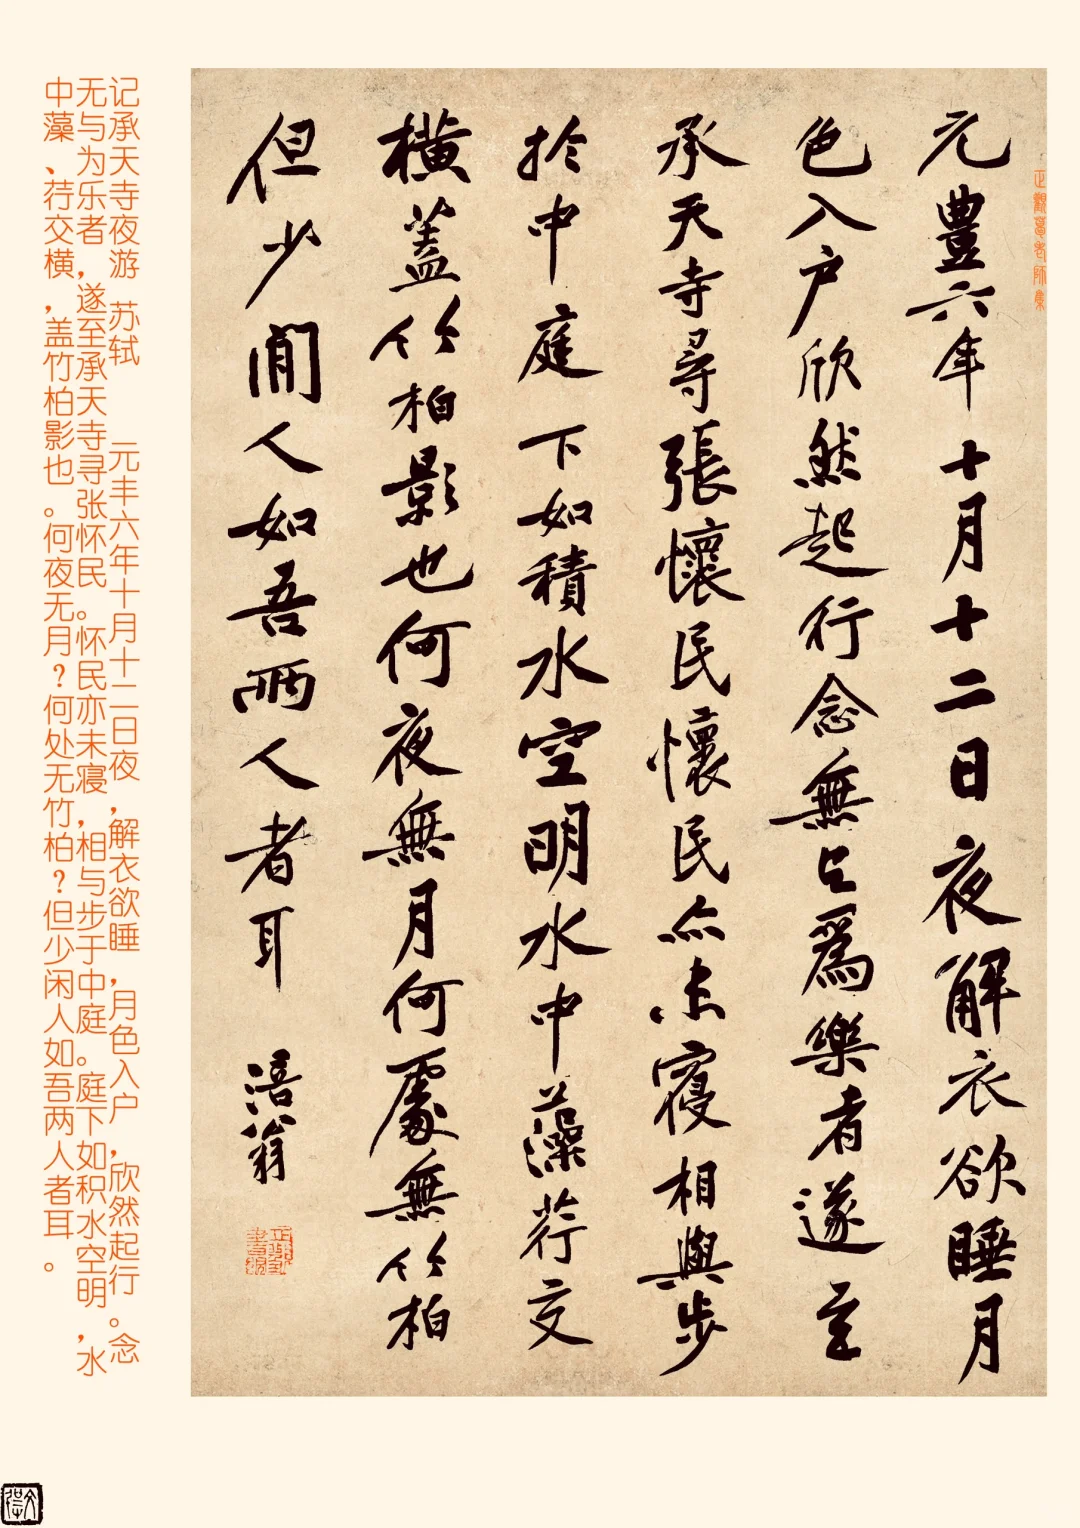 元豐六年十月十二日夜解衣欲睡月
色入户欣然起行念無与爲樂者遂至
承天寺尋張懷民懷民亦未寢相與步
於中庭下如積水空明水中藻荇交
橫蓋竹柏影也何夜無月何處無竹柏
但少閒人如吾兩人者耳 涪翁
记承天寺夜游 苏轼 元丰六年十月十二日夜，解衣欲睡，月色入户，欣然起行。念
无与为乐者，遂至承天寺寻张怀民。怀民亦未寝，相与步于中庭。庭下如积水空明，水
中藻、荇交横，盖竹柏影也。何夜无月？何处无竹柏？但少闲人如吾两人者耳。